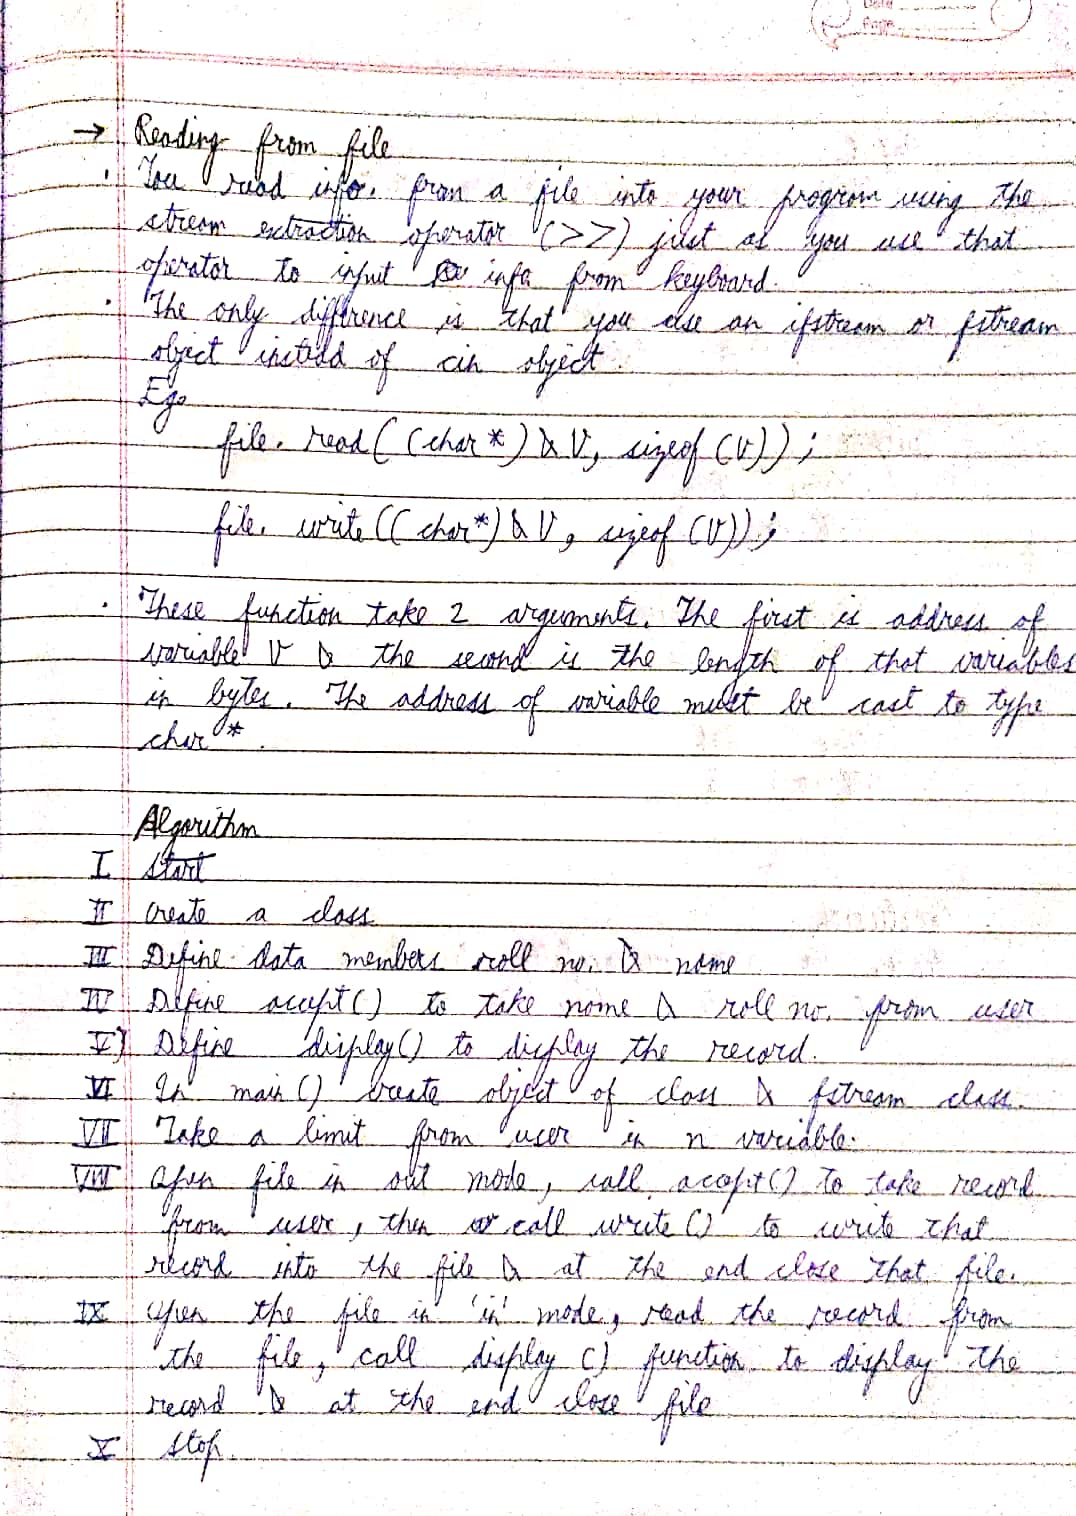 Date
Page
→ Reading from file
· You read info. from a file into your program using the
stream extraction operator (>>) just as you use that
operator to input info from keyboard.
· The only difference is that you use an ifstream or fstream
object instead of cin object.
Eg.
file. read ( (char *) & V, sizeof (V) ) ;
file. write (( char*) & V, sizeof (V)) ;
· These function take 2 arguments. The first is address of
variable V & the second is the length of that variables
in bytes. The address of variable must be cast to type
char *.
Algorithm
I Start
II Create a class
III Define data members roll no. & name
IV Define accept () to take name & roll no. from user
V) Define display() to display the record.
VI In main () create object of class & fstream class.
VII Take a limit from user in n variable.
VIII Open file in out mode, call accept () to take record
from user, then call write () to write that
record into the file & at the end close that file.
IX Open the file in 'in' mode, read the record from
the file, call display () function to display the
record & at the end close file
X Stop.